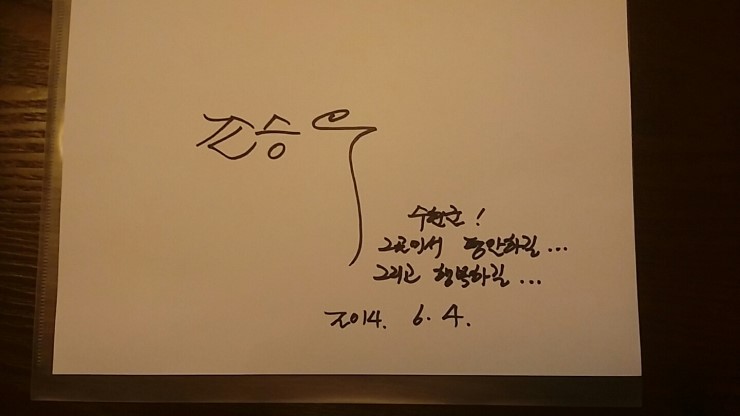 조승우
수현군!
그곳에서 평안하길...
그리고 행복하길...
2014. 6. 4.